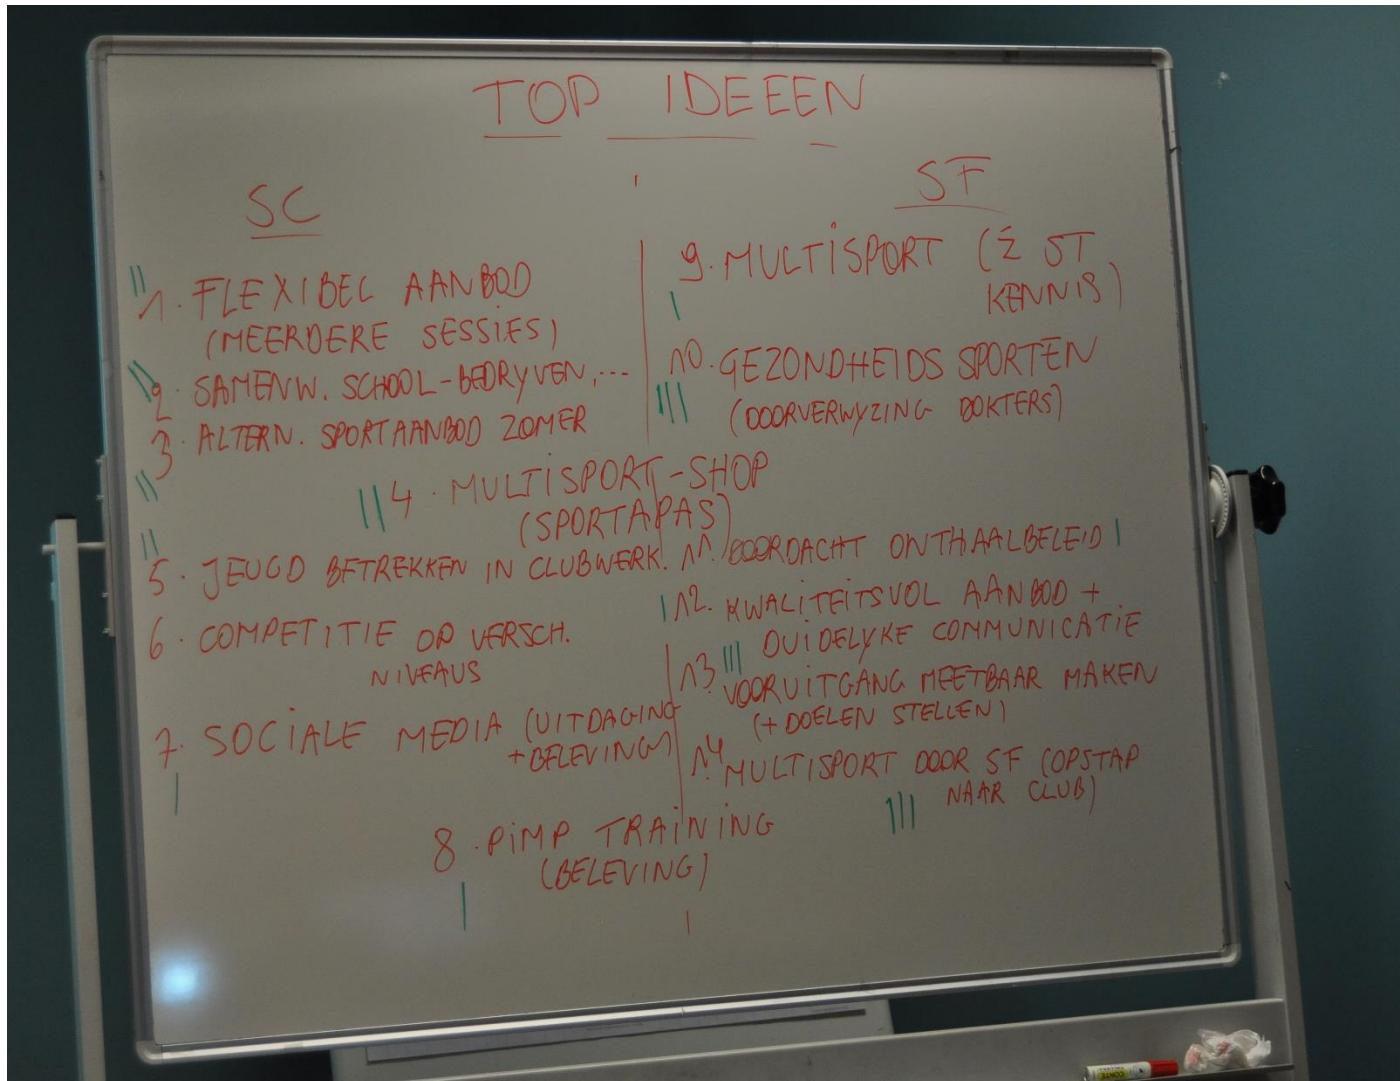 TOP IDEEEN
SC
1. FLEXIBEL AANBOD
(MEERDERE SESSIES)
2. SAMENW. SCHOOL-BEDRYVEN,...
3. ALTERN. SPORTAANBOD ZOMER
4. MULTISPORT-SHOP
(SPORTAPAS)
5. JEUGD BETREKKEN IN CLUBWERK.
6. COMPETITIE OP VERSCH.
NIVEAUS
7. SOCIALE MEDIA (UITDAGING
+BELEVING)
8. PIMP TRAINING
(BELEVING)
SF
9. MULTISPORT (
KENNIS)
10. GEZONDHEIDS SPORTEN
(DOORVERWYZING DOKTERS)
11. DOORDACHT ONTHAALBELEID
12. KWALITEITSVOL AANBOD +
DUIDELYKE COMMUNICATIE
13. VOORUITGANG MEETBAAR MAKEN
(+ DOELEN STELLEN)
14. MULTISPORT DOOR SF (OPSTAP
NAAR CLUB)